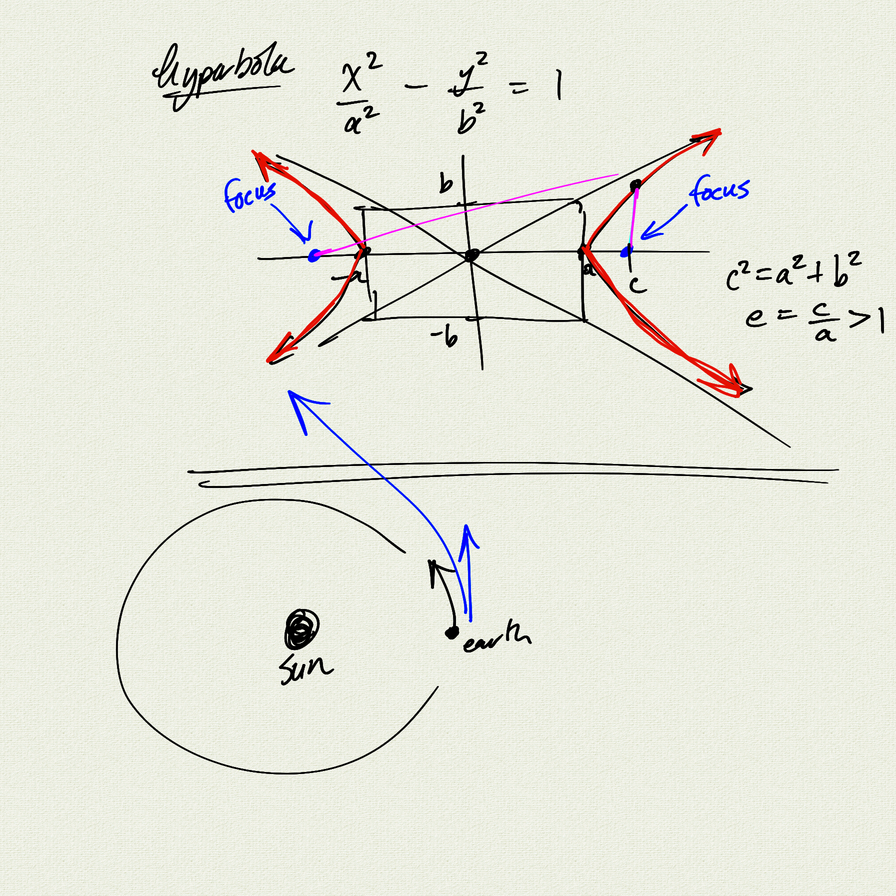 hyparbola
x²/a² - y²/b² = 1
b
focus
focus
-a
a
c
c² = a² + b²
e = c/a > 1
-b
earth
Sun